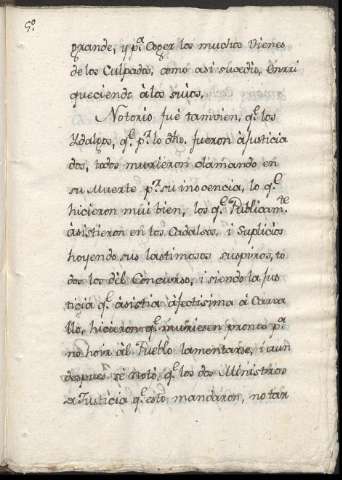 5º
grande, y pª Coger los muchos Vienes
de los Culpados, como así sucedio, Enrri
queciendo â los suios.
Notorio fue tamvien, q.ᵉ los
Ydalgos, q.ᵉ pʳ lo dho. fueron ajusticia
dos, todos murieron clamando en
su Muerte pʳ su inocencia, lo q.ᵉ
hicieron mui bien, los q.ᵉ Publicamᵗᵉ
asistieron en los Cadalsos, i Suplicios
hoyendo sus lastimosos suspiros, to
dos los del Concurso, i siendo la Jus
ticia q.ᵉ asistia afectisima â Carva
llo, hicieron q.ᵉ muriesen pronto pª
no hoir âl Pueblo lamentarse, i aun
despues se noto, q.ᵉ los dos Ministros
Justicia q.ᵉ esto mandaron, no tar